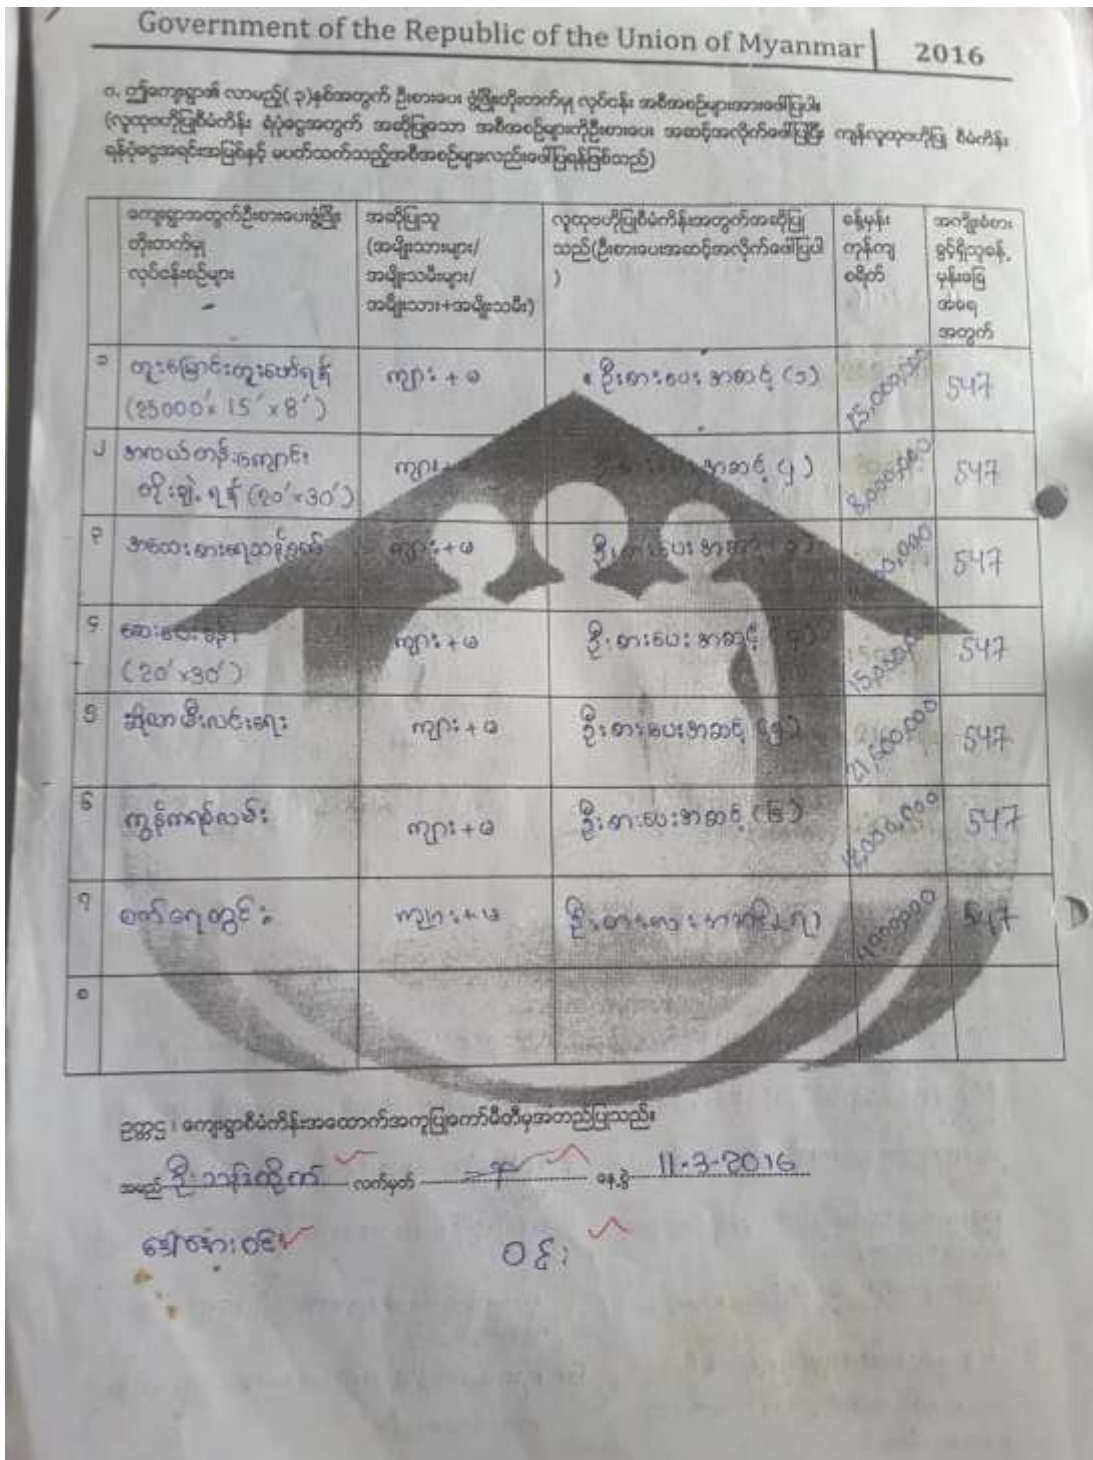 Government of the Republic of the Union of Myanmar | 2016
၁, ဤကျေးရွာ၏ လာမည့်( ၃)နှစ်အတွက် ဦးစားပေး ဖွံ့ဖြိုးတိုးတက်မှု လုပ်ငန်း အစီအစဉ်များအားဖော်ပြပါ။
(လူထုဗဟိုပြုစီမံကိန်း ရံပုံငွေအတွက် အဆိုပြုသော အစီအစဉ်များကိုဦးစားပေး အဆင့်အလိုက်ဖော်ပြပြီး ကျန်လူထုဗဟိုပြု စီမံကိန်း
ရန်ပုံငွေအရင်းအမြစ်နှင့် မပတ်သက်သည့်အစီအစဉ်များလည်းဖော်ပြရန်ဖြစ်သည်)
ကျေးရွာအတွက်ဦးစားပေးဖွံ့ဖြိုး
တိုးတက်မှု
လုပ်ငန်းစဉ်များ
အဆိုပြုသူ
(အမျိုးသားများ/
အမျိုးသမီးများ/
အမျိုးသား+အမျိုးသမီး)
လူထုဗဟိုပြုစီမံကိန်းအတွက်အဆိုပြု
သည်(ဦးစားပေးအဆင့်အလိုက်ဖော်ပြပါ
)
ခန့်မှန်း
ကုန်ကျ
စရိတ်
အကျိုးခံစား
ခွင့်ရှိသူခန့်
မှန်းခြေ
အရေ
အတွက်
၁ တူးမြောင်းတူးဖော်ရန် (25000'x 15' x 8') ကျား + မ ဦးစားပေး အဆင့် (၁) 25,000,000 547
၂ အလယ်တန်းကျောင်း တိုးချဲ့ရန် (20'x30') ကျား ဦးစားပေး အဆင့် (၂) 8,000,000 547
၃ အသေးစားရေသန့်စက် ကျား+မ ဦးစားပေး အဆင့် 547
၄ ဆေးပေးခန်း (20'x30') ကျား+မ ဦးစားပေး အဆင့် 15,000,000 547
၅ ဆိုလာမီးလင်းရေး ကျား+မ ဦးစားပေးအဆင့် (၅) 21,600,000 547
၆ ကွန်ကရစ်လမ်း ကျား+မ ဦးစားပေးအဆင့် (၆) 12,000,000 547
၇ စက်ရေတွင်း ကျား+မ ဦးစားပေးအဆင့် (၇) 4000000 547
၈
ဥက္ကဌ ၊ ကျေးရွာစီမံကိန်းအထောက်အကူပြုကော်မီတီမှအတည်ပြုသည်။
အမည် ဦး လက်မှတ် နေ့စွဲ 11-3-2016